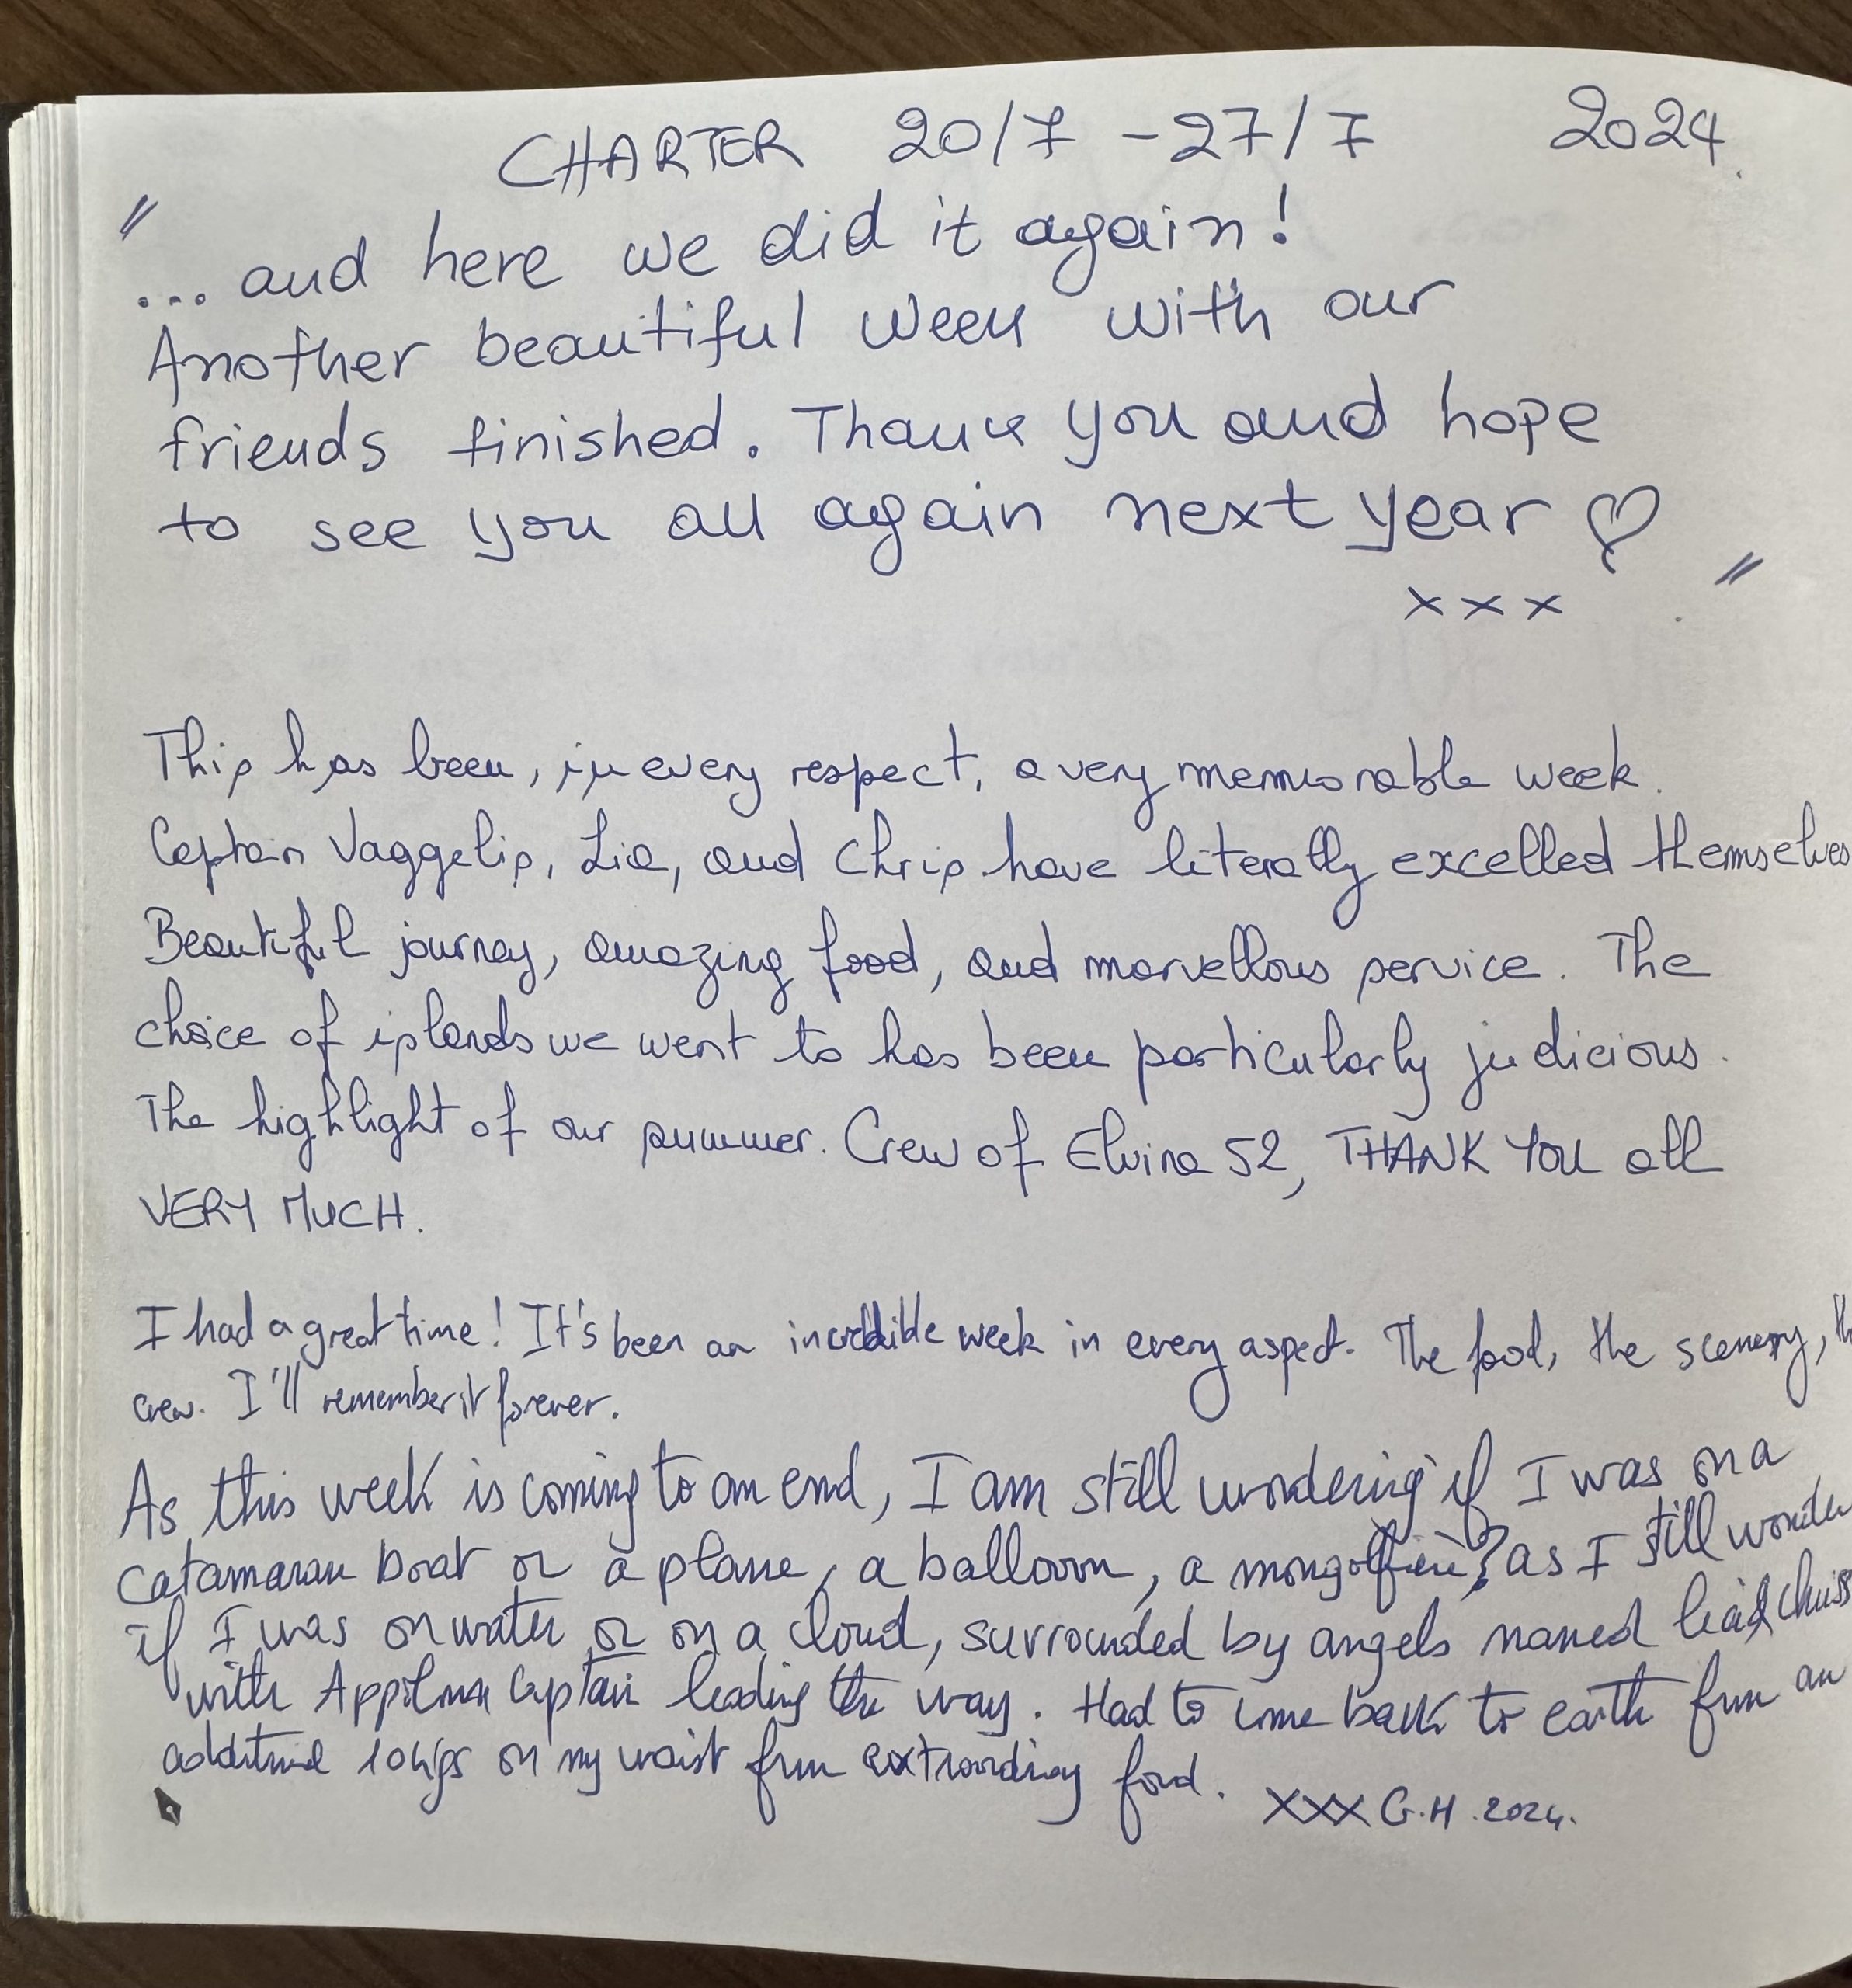 CHARTER 20/7 - 27/7 2024.
"
... and here we did it again!
Another beautiful week with our
friends finished. Thank you and hope
to see you all again next year ♡
xxx "
This has been, in every respect, a very memorable week.
Captain Vaggelis, Lia, and Chris have literally excelled themselves
Beautiful journey, amazing food, and marvellous service. The
choice of islands we went to has been particularly judicious.
The highlight of our summer. Crew of Elvira 52, THANK YOU all
VERY MUCH.
I had a great time! It's been an incredible week in every aspect. The food, the scenery,
crew. I'll remember it forever.
As this week is coming to an end, I am still wondering if I was on a
catamaran boat or a plane, a balloon, a as I still wonder
if I was on water or on a cloud, surrounded by angels named
with Captain leading the way. Had to come back to earth from an
additional 10 kgs on my waist from extraordinary food. XXX G.H. 2024.